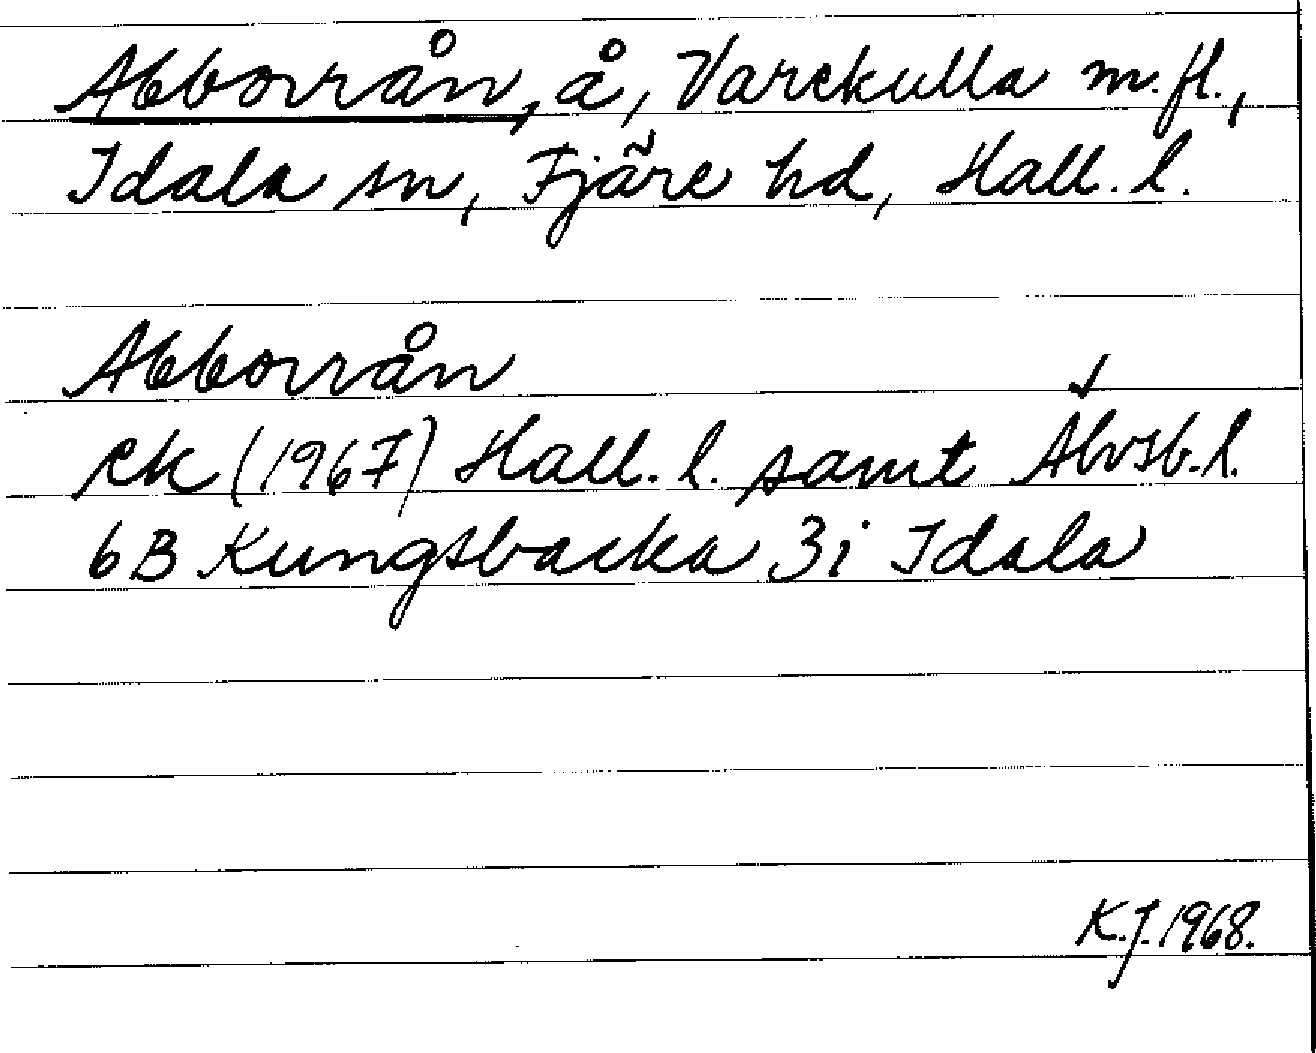 Abborrån, å, Varekulla m.fl.,
Idala sn, Fjäre hd, Hall. l.
Abborrån
ek (1967) Hall. l. samt Älvsb. l.
6B Kungsbacka 3i Idala
K.J. 1968.